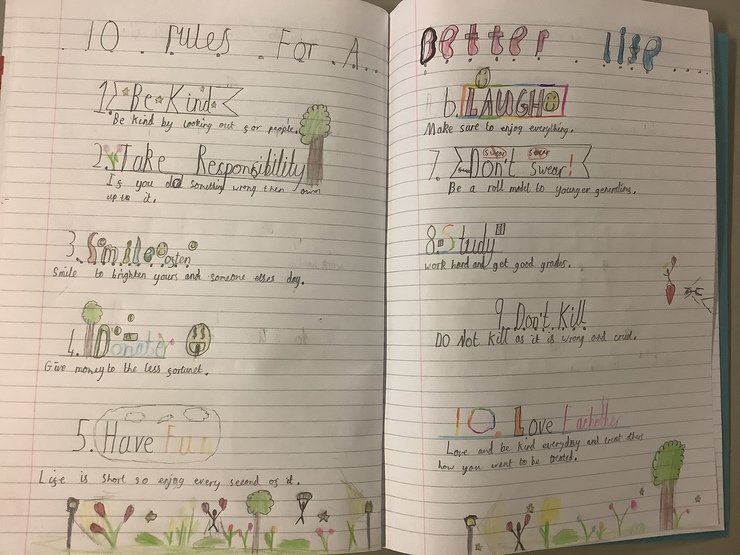 10 rules For A..
1. Be Kind
Be kind by looking out for people.
2. Take Responsibility
If you do something wrong then own
up to it.
3. Smile often
Smile to brighten yours and someone elses day.
4. Donate
Give money to the less fortunet.
5. Have Fun
Life is short so enjoy every second of it.
Better life....
6. LAUGH
Make sure to enjoy everything.
swear swear
7. Don't swear!
Be a roll model to younger generations.
8. Study
work hard and get good grades.
9. Don't Kill
DO Not kill as it is wrong and cruel.
10. Love Eachother
Love and be kind everyday and treat others
how you want to be treated.